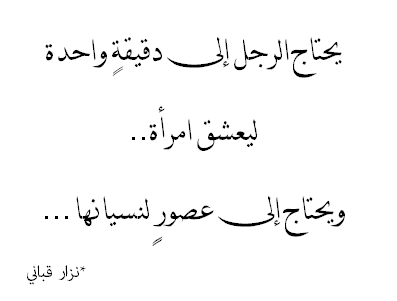 يحتاج الرجل إلى دقيقةٍ واحدة
ليعشق امرأة..
ويحتاج إلى عصورٍ لنسيانها ...
*نزار قباني